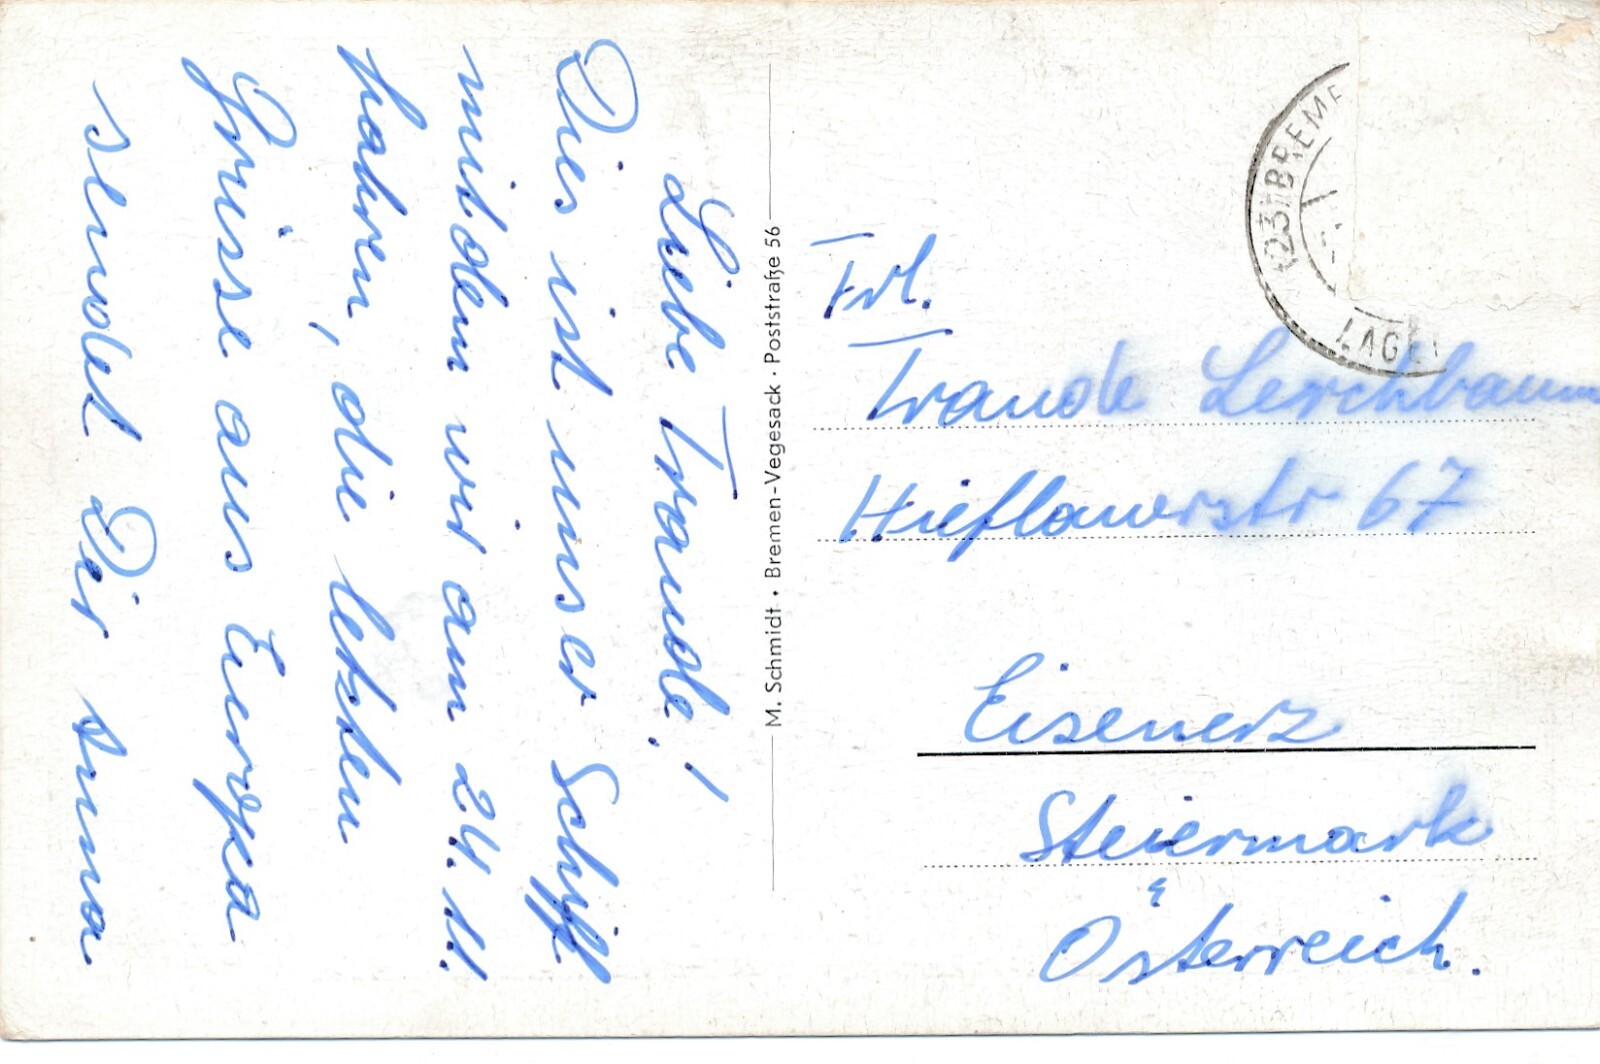 Liebe Traude!
Dies ist unser Schiff
mit dem wir am 24. 11.
fahren, die letzten
Grüsse aus Europa
sendet Dir
M. Schmidt · Bremen-Vegesack · Poststraße 56
Frl.
Traude Lerchbaum
Hieflauerstr 67
Eisenerz
Steiermark
Österreich.
(23) BREME
LAGE